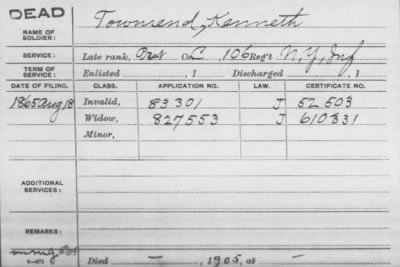 DEAD
NAME OF SOLDIER: Townsend, Kenneth
SERVICE: Late rank, Pvt Co. C, 106 Reg't N.Y. Inf
TERM OF SERVICE: Enlisted , 1 Discharged , 1
DATE OF FILING. CLASS. APPLICATION NO. LAW. CERTIFICATE NO.
1865 Aug 18 Invalid, 83301 J 52503
Widow, 827553 J 610331
Minor,
ADDITIONAL SERVICES:
REMARKS:
Died — , 1905, at —